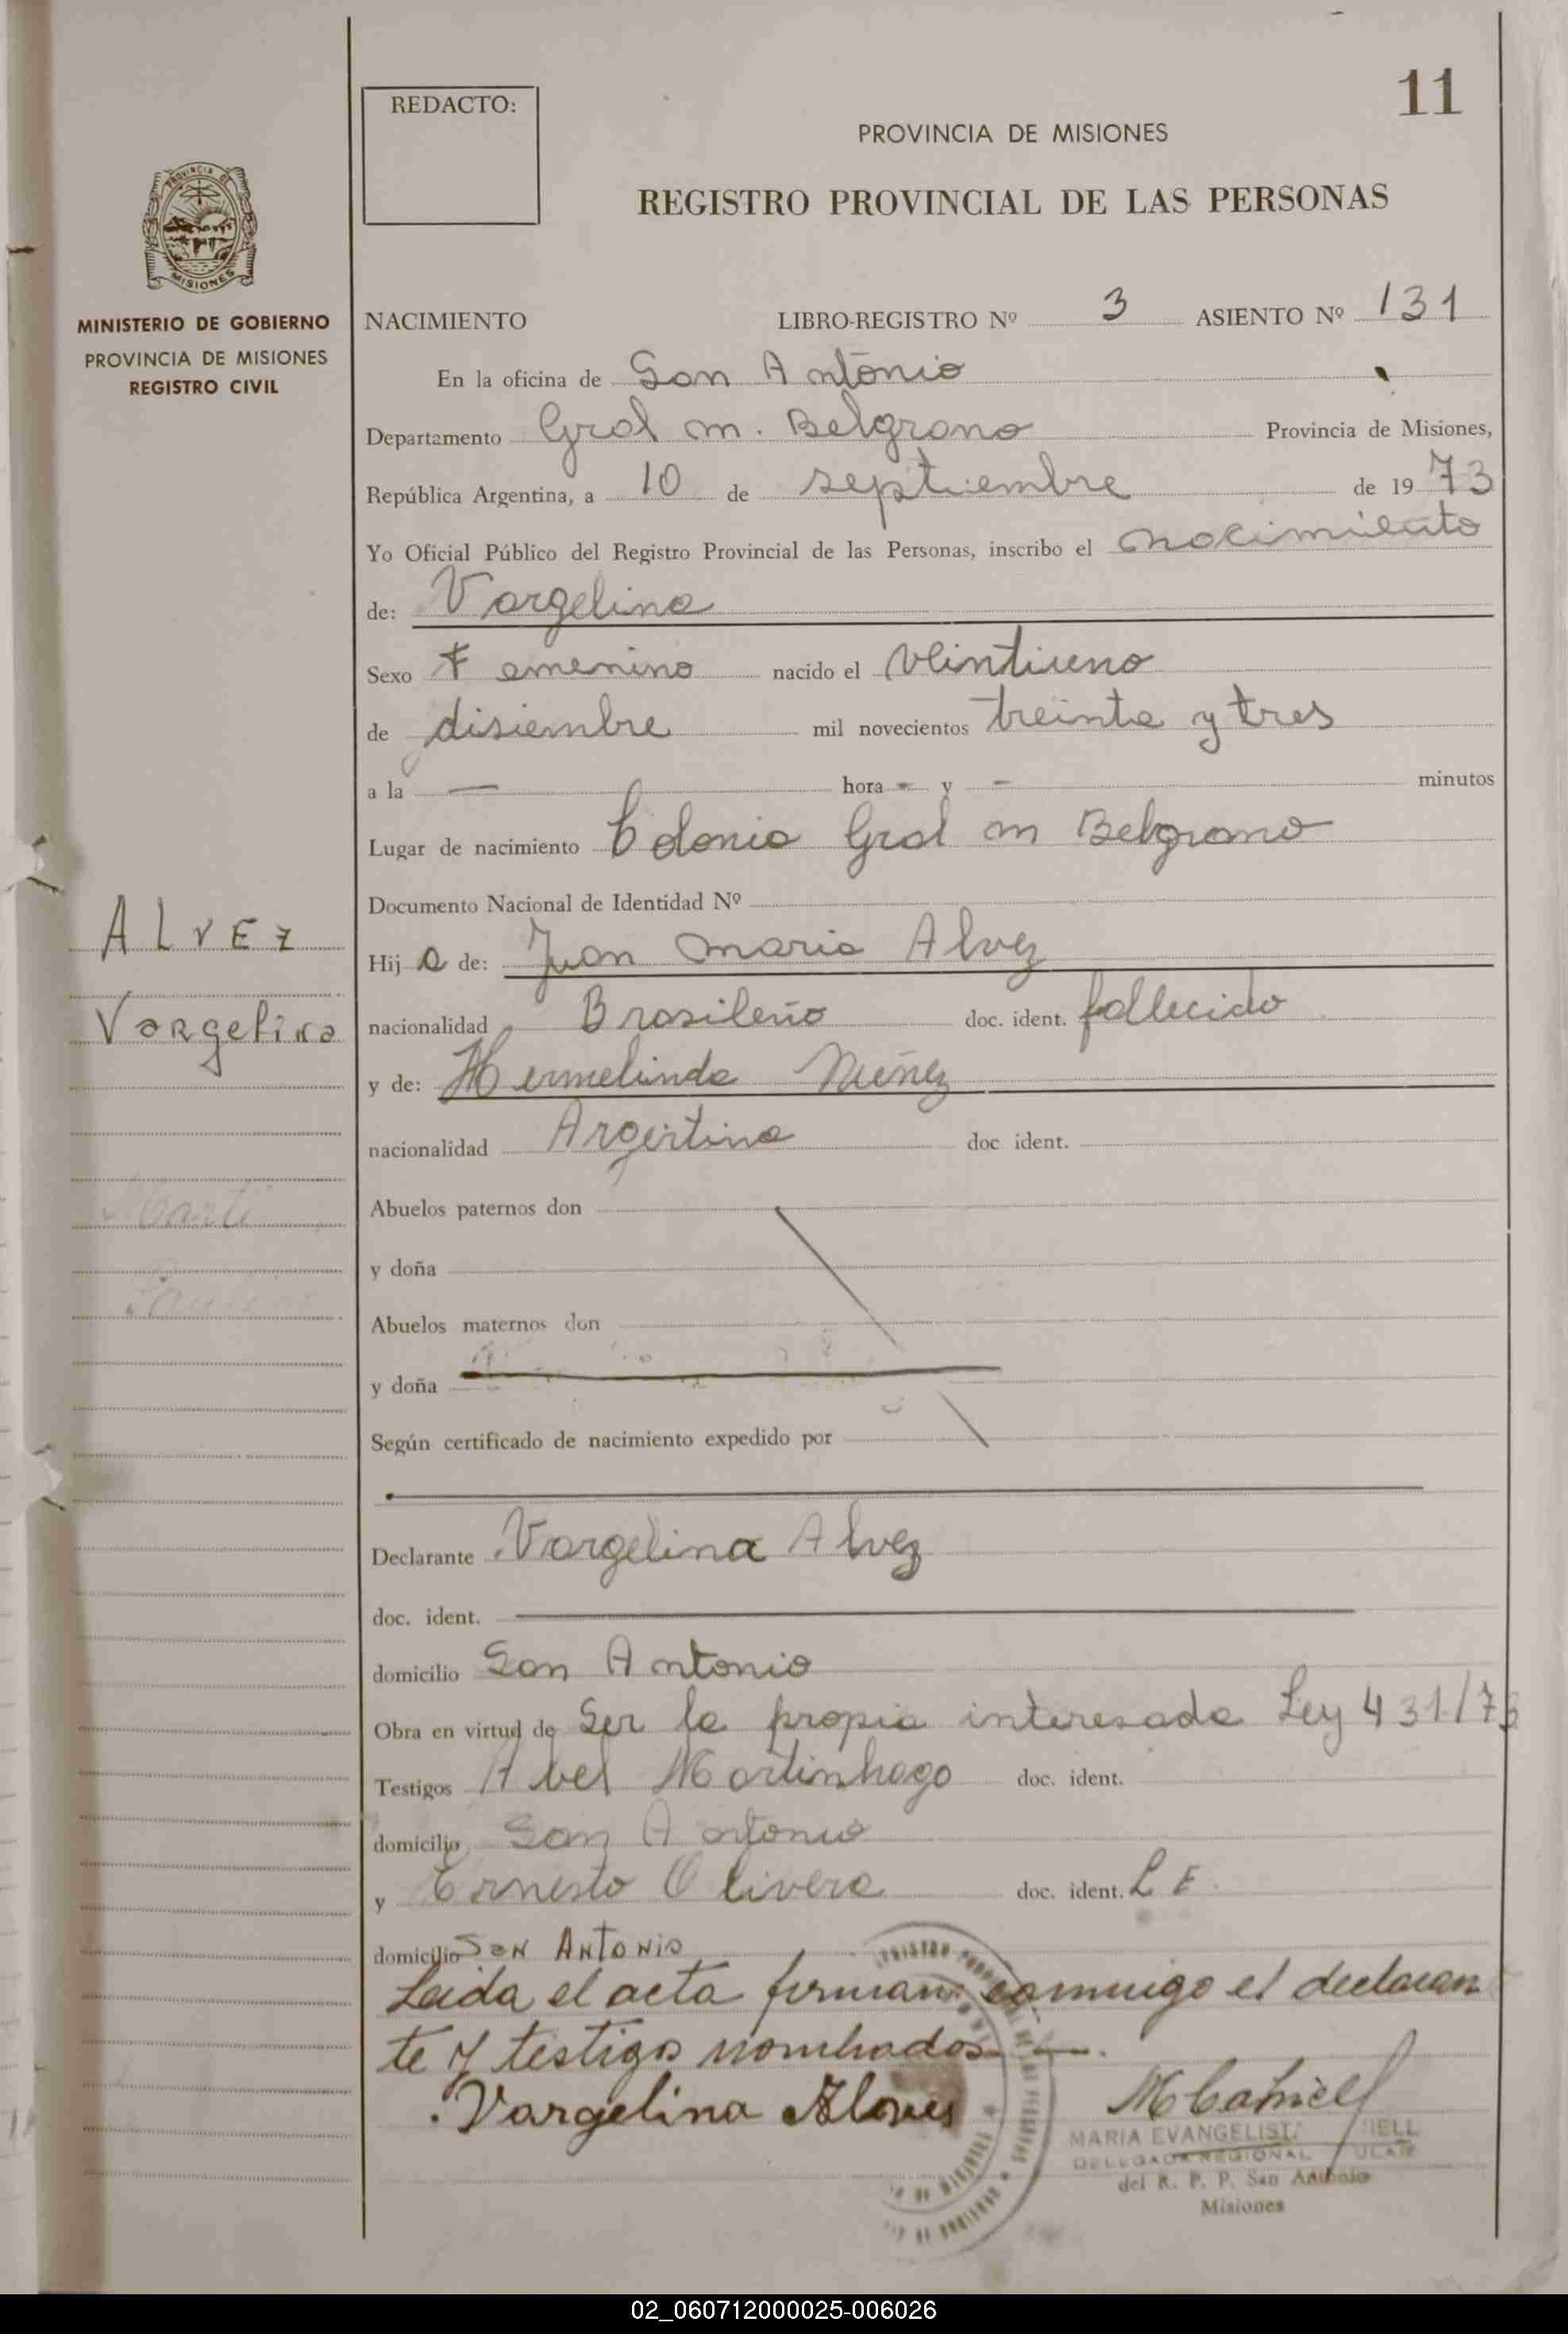 11
REDACTO:
PROVINCIA DE MISIONES
REGISTRO PROVINCIAL DE LAS PERSONAS
PROVINCIA DE
MISIONES
MINISTERIO DE GOBIERNO
PROVINCIA DE MISIONES
REGISTRO CIVIL
NACIMIENTO LIBRO-REGISTRO Nº 3 ASIENTO Nº 131
En la oficina de San Antonio
Departamento Gral m. Belgrano Provincia de Misiones,
República Argentina, a 10 de septiembre de 1973
Yo Oficial Público del Registro Provincial de las Personas, inscribo el nacimiento
de: Vargelina
Sexo Femenino nacido el veintiuno
de disiembre mil novecientos treinta y tres
a la — hora - y - minutos
Lugar de nacimiento Colonia Gral m Belgrano
Documento Nacional de Identidad Nº
ALVEZ
Hija de: Juan maria Alvez
Vargelina
nacionalidad Brasileño doc. ident. fallecido
y de: Hermelinda Nuñez
nacionalidad Argentina doc ident.
Abuelos paternos don
y doña
Abuelos maternos don
y doña
Según certificado de nacimiento expedido por
Declarante Vargelina Alvez
doc. ident.
domicilio San Antonio
Obra en virtud de Ser la propia interesada Ley 431/73
Testigos Abel Martinhago doc. ident.
domicilio San Antonio
y Ernesto Olivera doc. ident. L E.
domicilio San Antonio
Leida el acta firman conmigo el declaran
te y testigos nombrados —.
Vargelina Alves
MARIA EVANGELIST
del R. P. P. San Antonio
Misiones
02_060712000025-006026